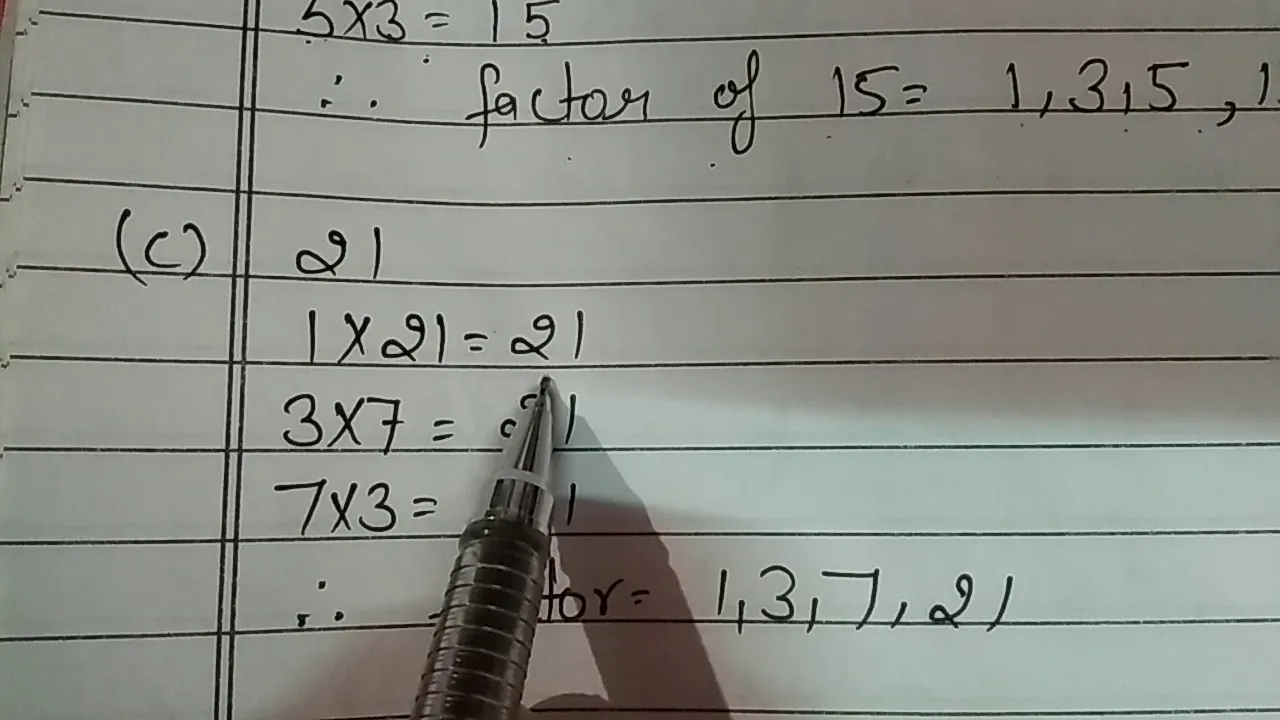 5x3 = 15
∴ factor of 15 = 1, 3, 5,
(c) 21
1 x 21 = 21
3x7 = 21
7x3 = 1
∴ tor = 1, 3, 7, 21